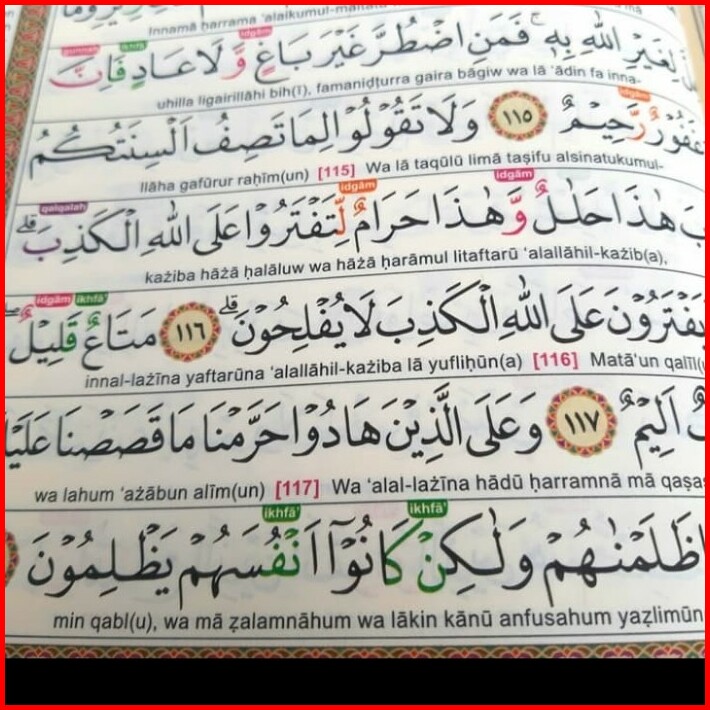 Innamā ḥarrama 'alaikumul-maitata
gunnah ikhfā' idgām
لِغَيْرِ اللّٰهِ بِهٖ ۚ فَمَنِ اضْطُرَّ غَيْرَ بَاغٍ وَّلَا عَادٍ فَاِنَّ
uhilla ligairillāhi bih(ī), famaniḍṭurra gaira bāgiw wa lā 'ādin fa inna-
idgām
غَفُوْرٌ رَّحِيْمٌ ١١٥ وَلَا تَقُوْلُوْا لِمَا تَصِفُ اَلْسِنَتُكُمُ
llāha gafūrur raḥīm(un) [115] Wa lā taqūlū limā taṣifu alsinatukumul-
qalqalah idgām idgām
هٰذَا حَلٰلٌ وَّهٰذَا حَرَامٌ لِّتَفْتَرُوْا عَلَى اللّٰهِ الْكَذِبَ ۗ
każiba hāżā ḥalāluw wa hāżā ḥarāmul litaftarū 'alallāhil-każib(a),
idgām ikhfā'
يَفْتَرُوْنَ عَلَى اللّٰهِ الْكَذِبَ لَا يُفْلِحُوْنَ ۗ ١١٦ مَتَاعٌ قَلِيْلٌ ۖ
innal-lażīna yaftarūna 'alallāhil-każiba lā yufliḥūn(a) [116] Matā'un qalīl(
اَلِيْمٌ ١١٧ وَعَلَى الَّذِيْنَ هَادُوْا حَرَّمْنَا مَا قَصَصْنَا
wa lahum 'ażābun alīm(un) [117] Wa 'alal-lażīna hādū ḥarramnā mā qaṣaṣ
ikhfā' ikhfā'
ظَلَمْنٰهُمْ وَلٰكِنْ كَانُوْٓا اَنْفُسَهُمْ يَظْلِمُوْنَ
min qabl(u), wa mā ẓalamnāhum wa lākin kānū anfusahum yaẓlimūn